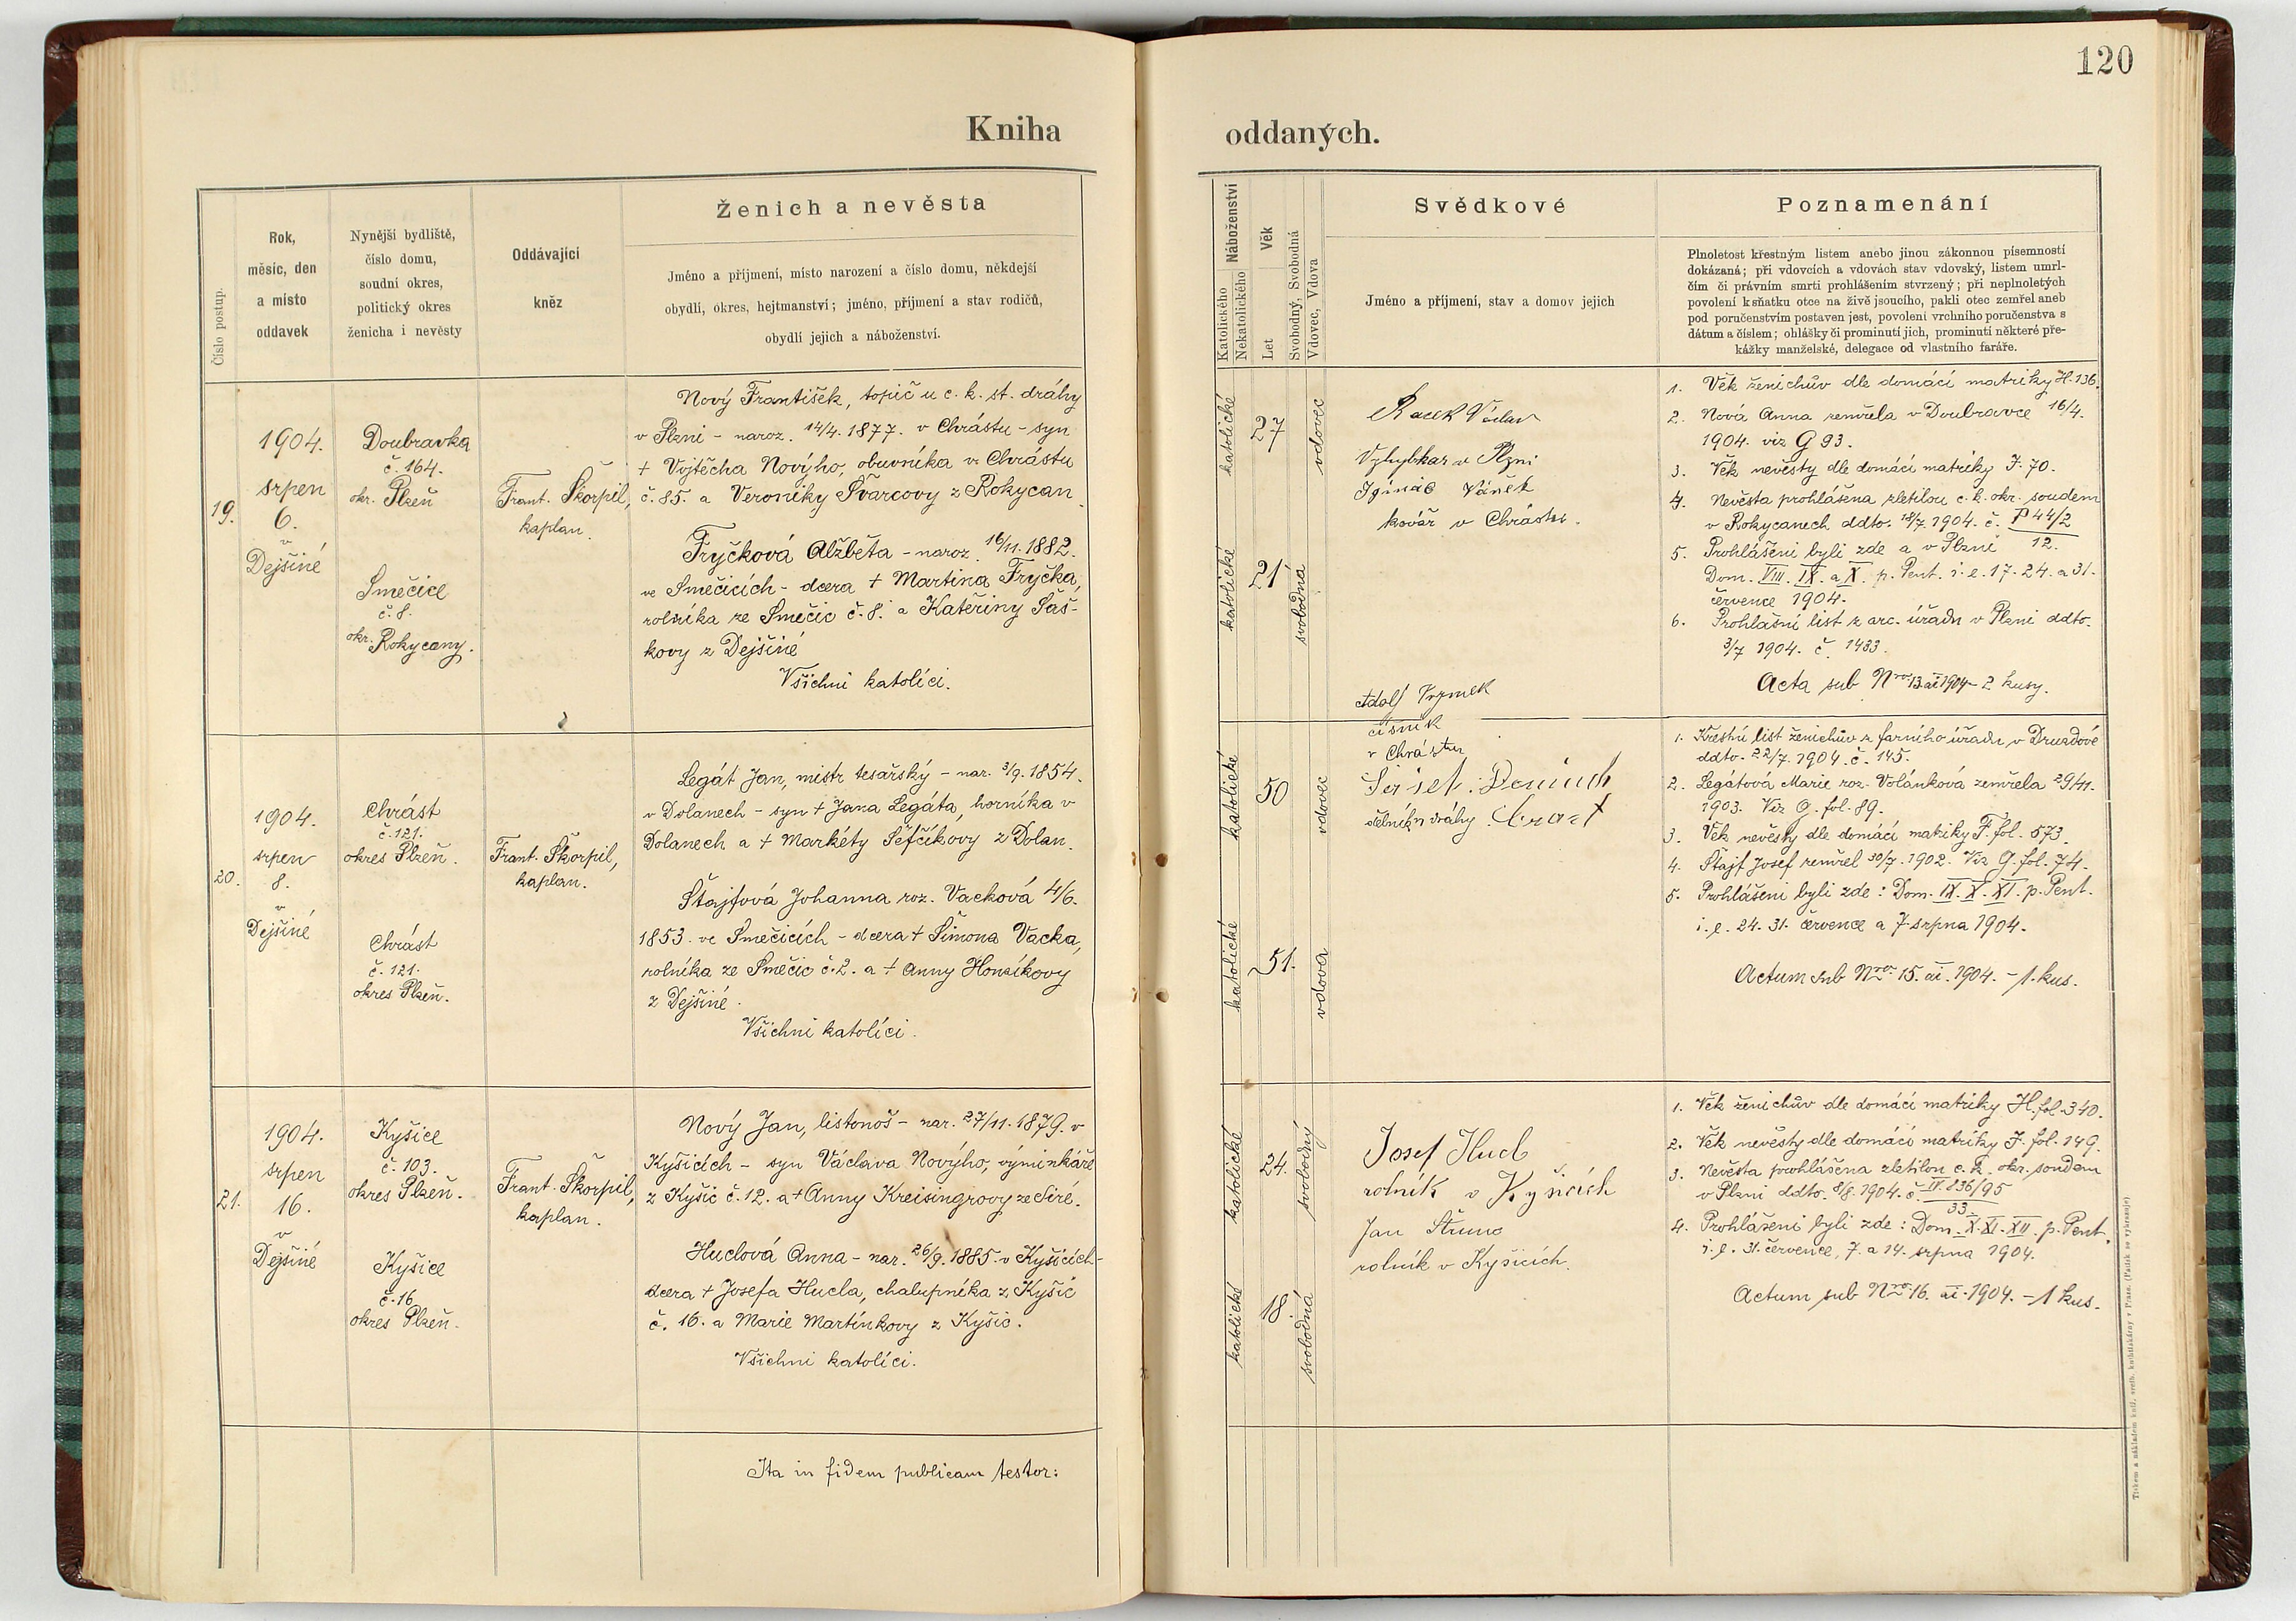 120
Kniha oddaných.
Číslo postup.
Rok,
měsíc, den
a místo
oddavek
Nynější bydliště,
číslo domu,
soudní okres,
politický okres
ženicha i nevěsty
Oddávající
kněz
Ženich a nevěsta
Jméno a příjmení, místo narození a číslo domu, někdejší
obydlí, okres, hejtmanství; jméno, příjmení a stav rodičů,
obydlí jejich a náboženství.
Náboženství
Katolického
Nekatolického
Věk
Let
Svobodný, Svobodná
Vdovec, Vdova
Svědkové
Jméno a příjmení, stav a domov jejich
Poznamenání
Plnoletost křestným listem anebo jinou zákonnou písemností
dokázaná; při vdovcích a vdovách stav vdovský, listem umrl-
čím či právním smrti prohlášením stvrzený; při neplnoletých
povolení k sňatku otce na živě jsoucího, pakli otec zemřel aneb
pod poručenstvím postaven jest, povolení vrchního poručenstva s
dátum a číslem; ohlášky či prominutí jich, prominutí některé pře-
kážky manželské, delegace od vlastního faráře.
19.
1904.
srpen
6.
v
Dejšině
Doubravka
č. 164.
okr. Plzeň
Smečice
č. 8.
okr. Rokycany.
Frant. Škorpil,
kaplan.
Nový František, topič u c. k. st. dráhy
v Plzni - naroz. 14/4. 1877. v Chrástu - syn
+ Vojtěcha Novýho, obuvníka v Chrástu
č. 85. a Veroniky Švarcovy z Rokycan.
Fryčková Alžběta - naroz. 16/11. 1882.
ve Smečicích - dcera + Martina Fryčka,
rolníka ze Smečic č. 8. a Kateřiny Šaš-
kovy z Dejšině
Všichni katolíci.
katolické
27
vdovec
katolické
21
svobodná
Racek Václav
Vyhybkar v Plzni
Ignác Váněk
kovář v Chrástu.
1. Věk ženichův dle domácí matriky H. 136.
2. Nová Anna zemřela v Doubravce 16/4.
1904. viz G 93.
3. Věk nevěsty dle domácí matriky J. 70.
4. Nevěsta prohlášena zletilou c. k. okr. soudem
v Rokycanech ddto. 18/7. 1904. č. P 44/2
12.
5. Prohlášeni byli zde a v Plzni
Dom. VIII. IX. a X. p. Pent. i. e. 17. 24. a 31.
července 1904.
6. Prohlašní list z arc. úřadu v Plzni ddto.
3/7 1904. č. 1433.
Acta sub Nro 13. ai 1904 - 2 kusy.
20.
1904.
srpen
8.
v
Dejšině
Chrást
č. 121.
okres Plzeň.
Chrást
č. 121.
okres Plzeň.
Frant. Škorpil,
kaplan.
Legát Jan, mistr tesařský - nar. 3/9. 1854.
v Dolanech - syn + Jana Legáta, horníka v
Dolanech a + Markéty Šefčíkovy z Dolan.
Štajfová Johanna roz. Vacková 4/6.
1853. ve Smečicích - dcera + Šimona Vacka,
rolníka ze Smečic č. 2. a + Anny Honzíkovy
z Dejšině.
Všichni katolíci.
katolické
50
vdovec
katolické
51.
vdova
Adolf
číšník
v Chrástu
dělník dráhy Chrást
1. Křestní list ženichův z farního úřadu v Druzdově
ddto. 22/7. 1904. č. 145.
2. Legátová Marie roz. Volánková zemřela 29/11.
1903. Viz G. fol. 89.
3. Věk nevěsty dle domácí matriky F. fol. 573.
4. Štajf Josef zemřel 30/7. 1902. Viz G. fol. 74.
5. Prohlášeni byli zde: Dom. IX. X. XI. p. Pent.
i. e. 24. 31. července a 7. srpna 1904.
Actum sub Nro 15. ai. 1904. - 1. kus.
21.
1904.
srpen
16.
v
Dejšině
Kyšice
č. 103.
okres Plzeň.
Kyšice
č. 16.
okres Plzeň.
Frant. Škorpil,
kaplan.
Nový Jan, listonoš - nar. 27/11. 1879. v
Kyšicích - syn Václava Novýho, výminkáře
z Kyšic č. 12. a + Anny Kreisingrovy ze Siré.
Huclová Anna - nar. 26/9. 1885. v Kyšicích -
dcera + Josefa Hucla, chalupníka z Kyšic
č. 16. a Marie Martínkovy z Kyšic.
Všichni katolíci.
katolické
24.
svobodný
katolické
18.
svobodná
Josef Hucl
rolník v Kyšicích
Jan
rolník v Kyšicích.
1. Věk ženichův dle domácí matriky H. fol. 340.
2. Věk nevěsty dle domácí matriky J. fol. 149.
3. Nevěsta prohlášena zletilou c. k. okr. soudem
v Plzni ddto. 8/8. 1904. č. IV. 836/95
33.
4. Prohlášeni byli zde: Dom. X. XI. XII. p. Pent.
i. e. 31. července, 7. a 14. srpna 1904.
Actum sub Nro 16. ai. 1904. - 1 kus.
Ita in fidem publicam testor: